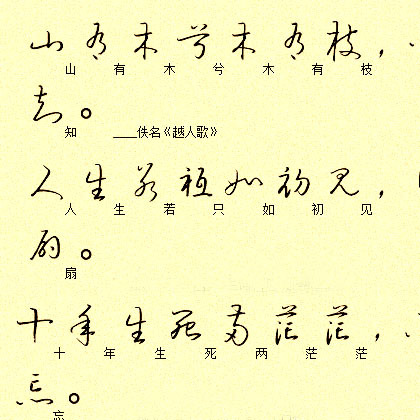 山有木兮木有枝，
山 有 木 兮 木 有 枝
知。
知 ____佚名《越人歌》
人生若祗如初见，
人 生 若 只 如 初 见
扇。
扇
十年生死两茫茫，
十 年 生 死 两 茫 茫
忘。
忘